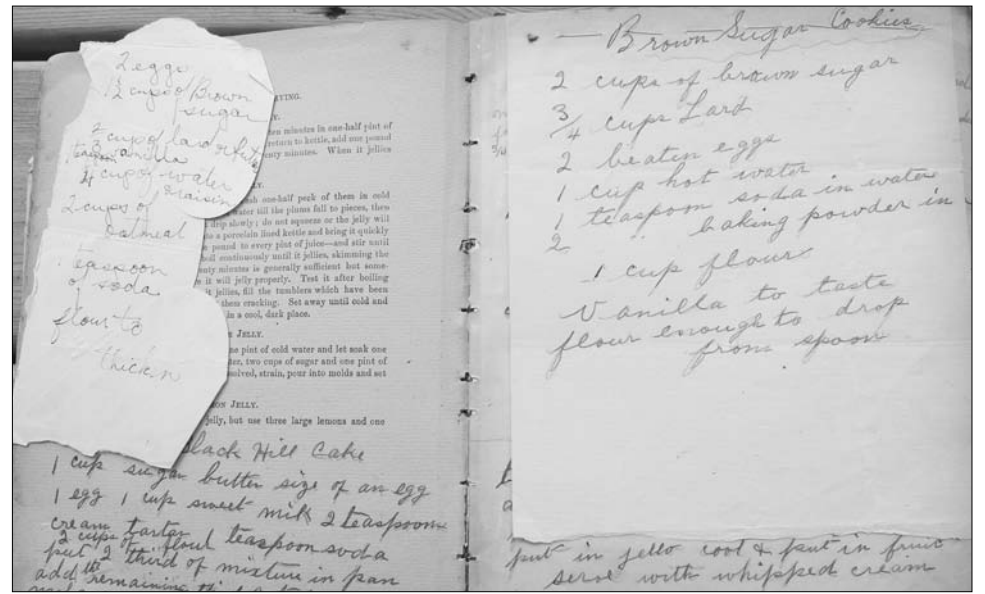 2 eggs
1½ cups of Brown
sugar
cup of lard
vanilla
cup of water
raisin
2 cups of
oatmeal
teaspoon
of soda
flour to
thicken
ten minutes in one-half pint of
return to kettle, add one pound
twenty minutes. When it jellies
one-half peck of them in cold
water till the plums fall to pieces, then
drip slowly; do not squeeze or the jelly will
a porcelain lined kettle and bring it quickly
pound to every pint of juice—and stir until
boil continuously until it jellies, skimming the
minutes is generally sufficient but some-
it will jelly properly. Test it after boiling
it jellies, fill the tumblers which have been
them cracking. Set away until cold and
in a cool, dark place.
Jelly.
pint of cold water and let soak one
two cups of sugar and one pint of
strain, pour into molds and set
Jelly.
jelly, but use three large lemons and one
Black Hill Cake
1 cup sugar butter size of an egg
1 egg 1 cup sweet milk 2 teaspoons
cream tartar
2 cups of flour teaspoon soda
put 2 third of mixture in pan
add the remaining
Brown Sugar Cookies
2 cups of brown sugar
3/4 cups Lard
2 beaten eggs
1 cup hot water
1 teaspoon soda in water
2 " baking powder in
1 cup flour
Vanilla to taste
flour enough to drop
from spoon
put in jello cool & put in
serve with whipped cream